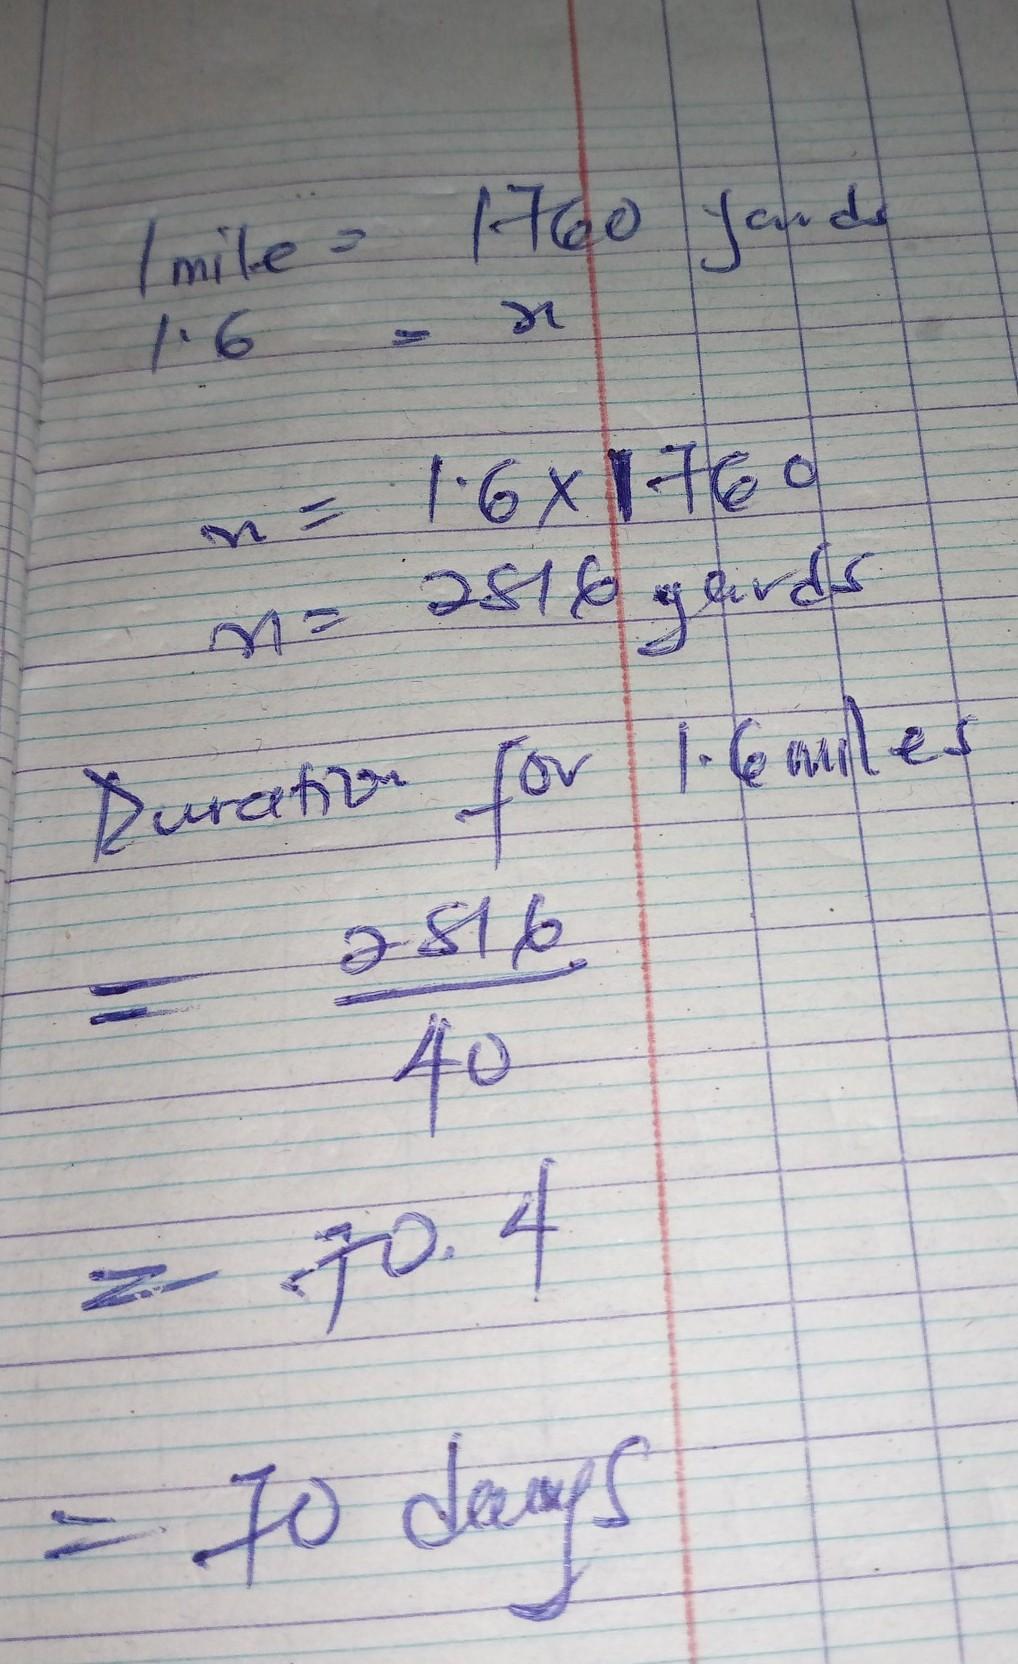 1 mile = 1760 yards
1.6 = x
x = 1.6 x 1760
x = 2816 yards
Duration for 1.6 miles
= 2816
40
= 70.4
= 70 days